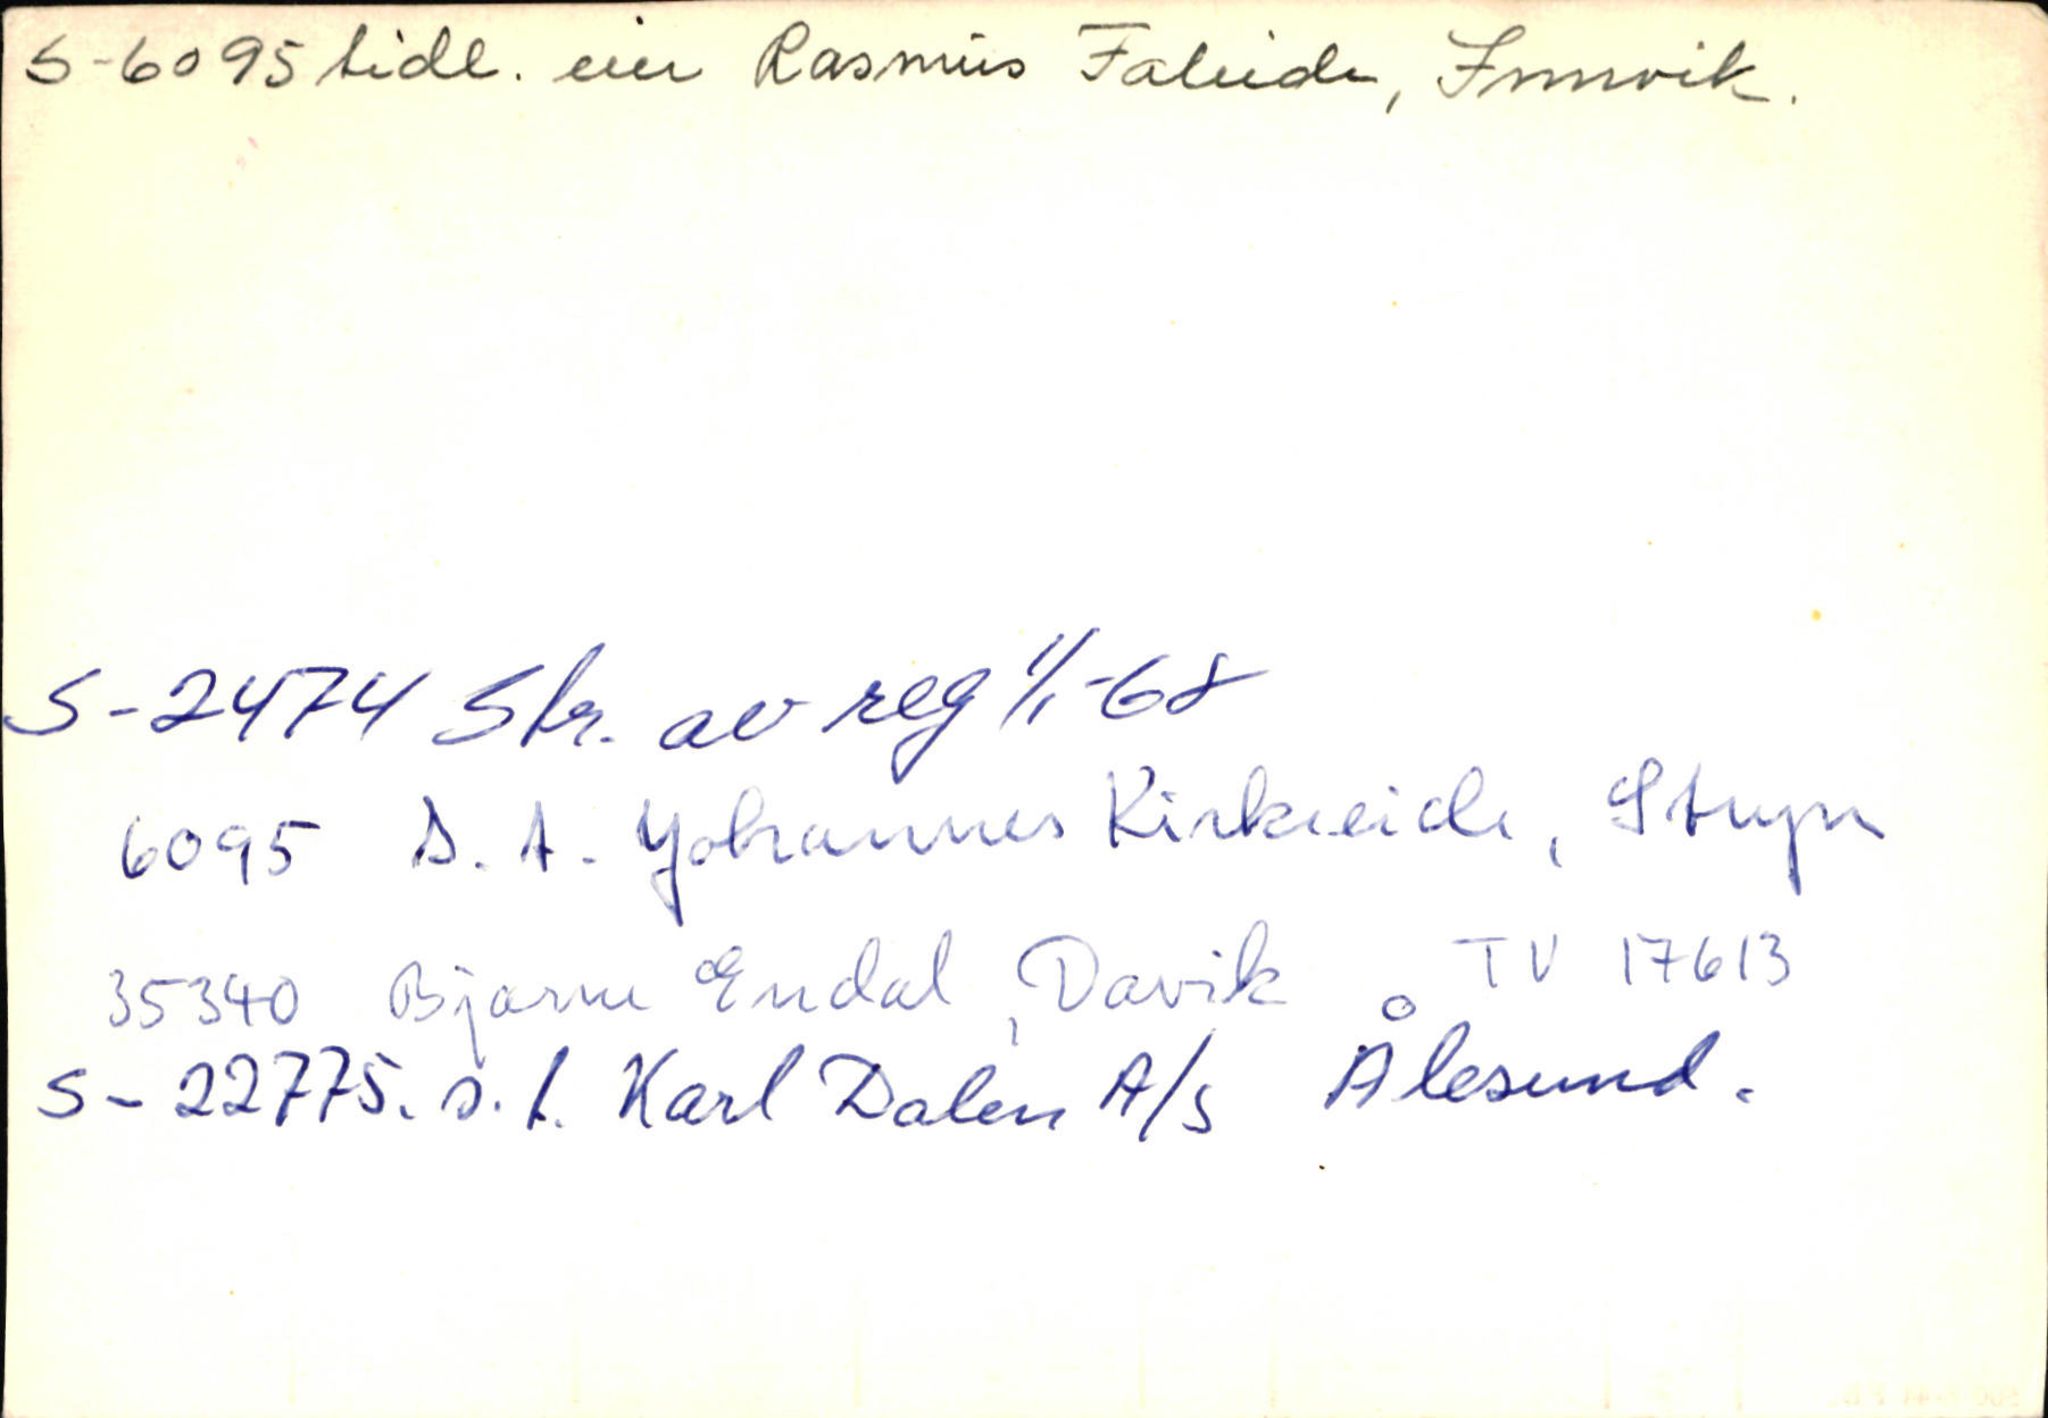 S-6095 tidl. eier Rasmus Faleide, Innvik.
S-2474 Str. av reg 1/1-68
6095 D. A. Johannes Kirkeeide, Stryn
35340 Bjarne Endal, Davik TV 17613
S-22775. s. t. Karl Dalen A/S Ålesund.